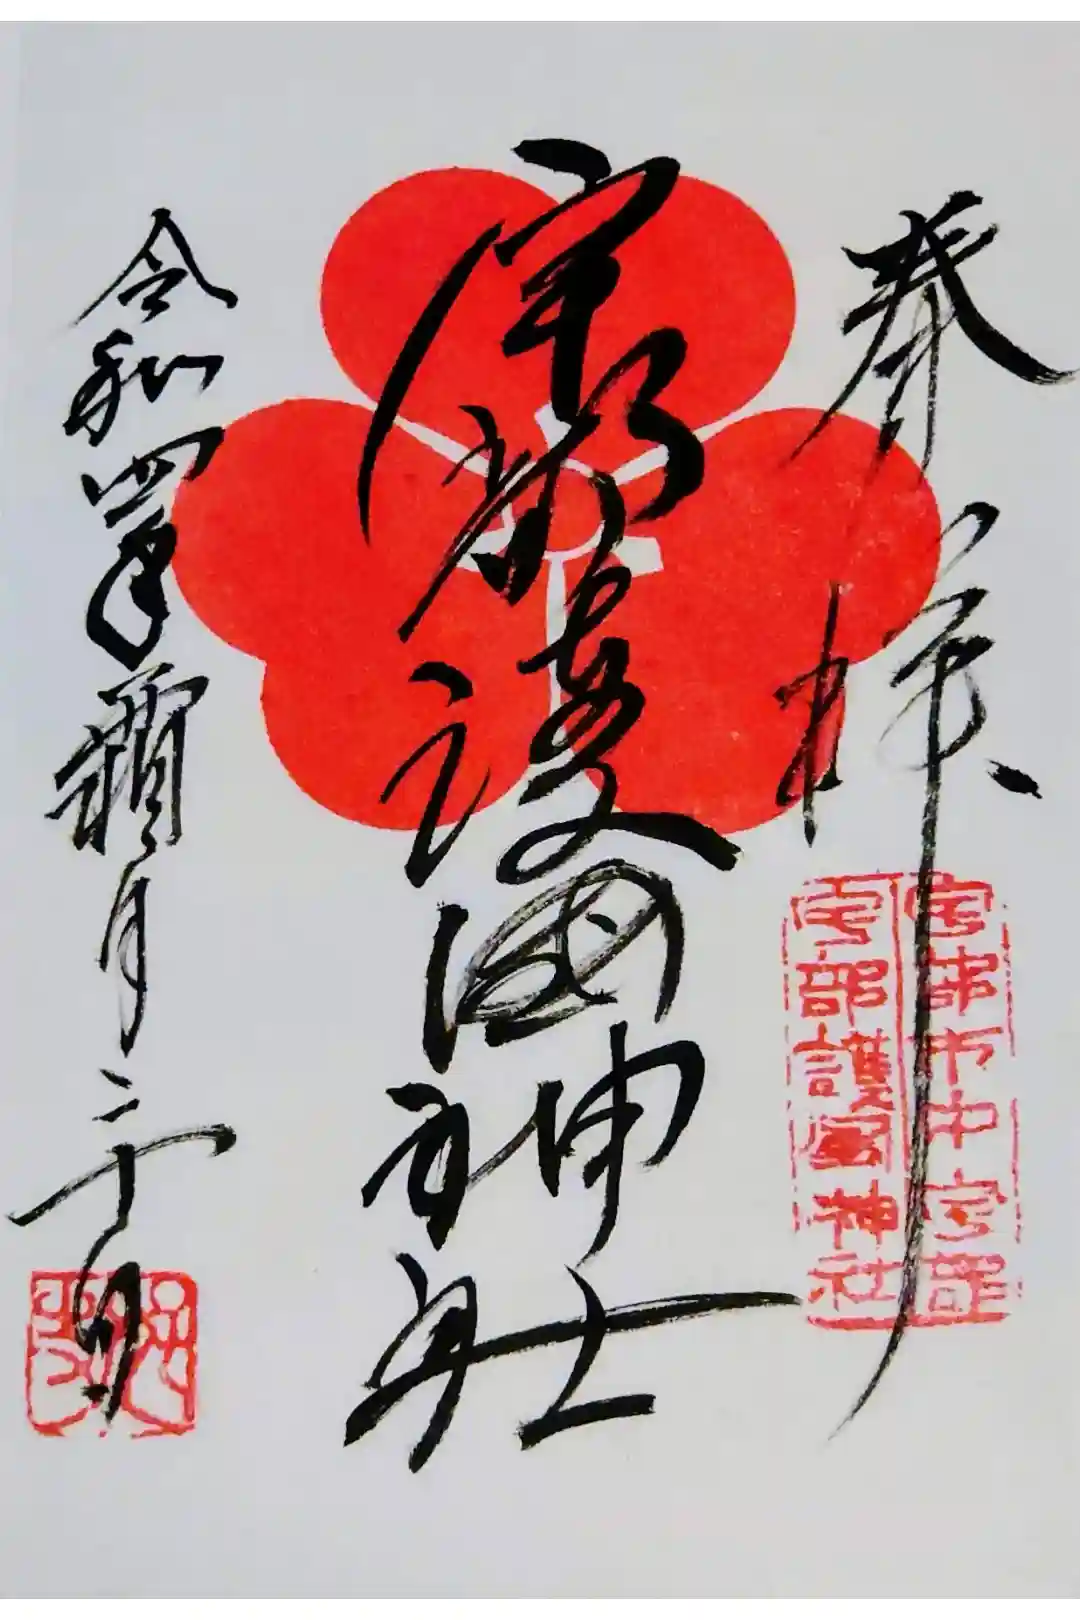 奉拝
宇部市中宇部
宇部護国神社
宇部護国神社
令和四年霜月二十日